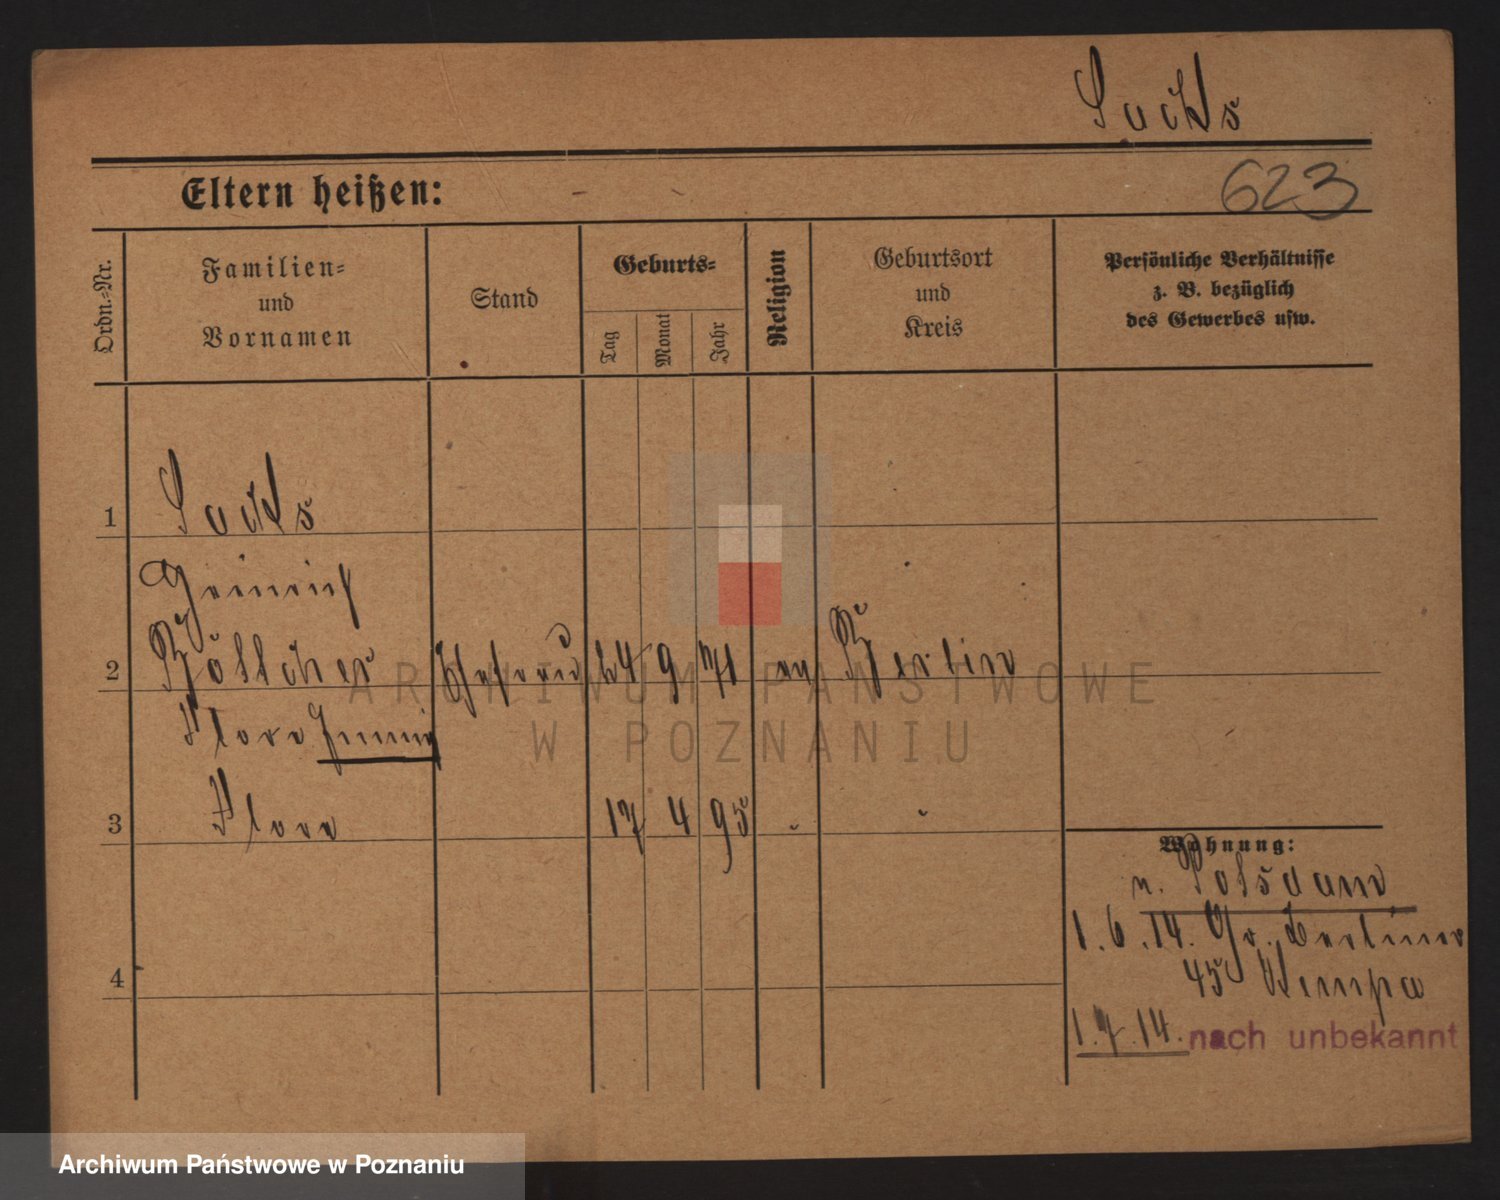 Sachs
Eltern heißen:
623
Ordn.-Nr.
Familien-
und
Vornamen
Stand
Geburts-
Tag
Monat
Jahr
Religion
Geburtsort
und
Kreis
Persönliche Verhältnisse
z. B. bezüglich
des Gewerbes usw.
1 Sachs
Heinrich
2 Böttcher Ehefrau 24 9 71 ev Berlin
Flora
3 Flora 17 4 95 " "
Wohnung:
n. Potsdam
1.6.14. Gr. Berliner
45
4
1.7.14. nach unbekannt
ARCHIWUM PAŃSTWOWE
W POZNANIU
Archiwum Państwowe w Poznaniu